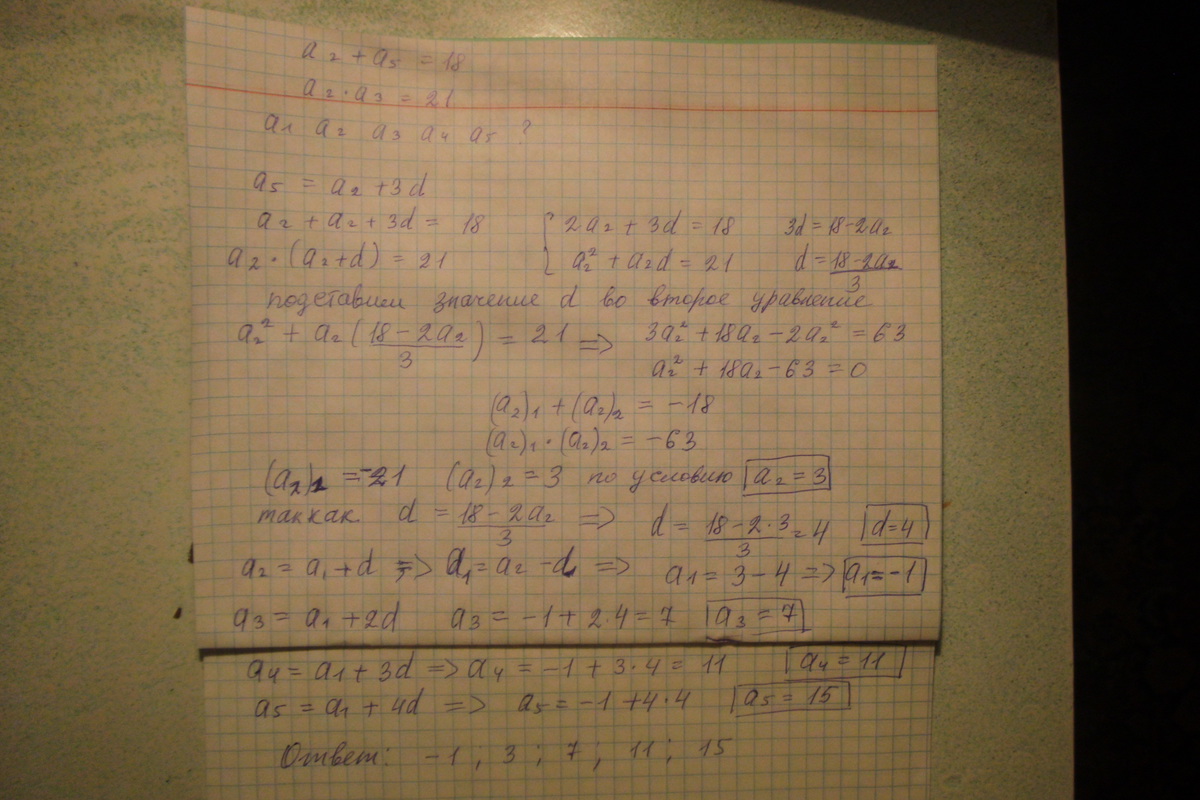 a₂ + a₅ = 18
a₂ · a₃ = 21
a₁ a₂ a₃ a₄ a₅ ?
a₅ = a₂ + 3d
a₂ + a₂ + 3d = 18 { 2a₂ + 3d = 18 3d = 18 - 2a₂
a₂ · (a₂ + d) = 21 a₂² + a₂d = 21 d = (18 - 2a₂)/3
подставим значение d во второе уравнение
a₂² + a₂((18 - 2a₂)/3) = 21 => 3a₂² + 18a₂ - 2a₂² = 63
a₂² + 18a₂ - 63 = 0
(a₂)₁ + (a₂)₂ = -18
(a₂)₁ · (a₂)₂ = -63
(a₂)₁ = -21 (a₂)₂ = 3 по условию a₂ = 3
так как d = (18 - 2a₂)/3 => d = (18 - 2·3)/3 = 4 d = 4
a₂ = a₁ + d => a₁ = a₂ - d => a₁ = 3 - 4 => a₁ = -1
a₃ = a₁ + 2d a₃ = -1 + 2·4 = 7 a₃ = 7
a₄ = a₁ + 3d => a₄ = -1 + 3·4 = 11 a₄ = 11
a₅ = a₁ + 4d => a₅ = -1 + 4·4 a₅ = 15
Ответ: -1 ; 3 ; 7 ; 11 ; 15